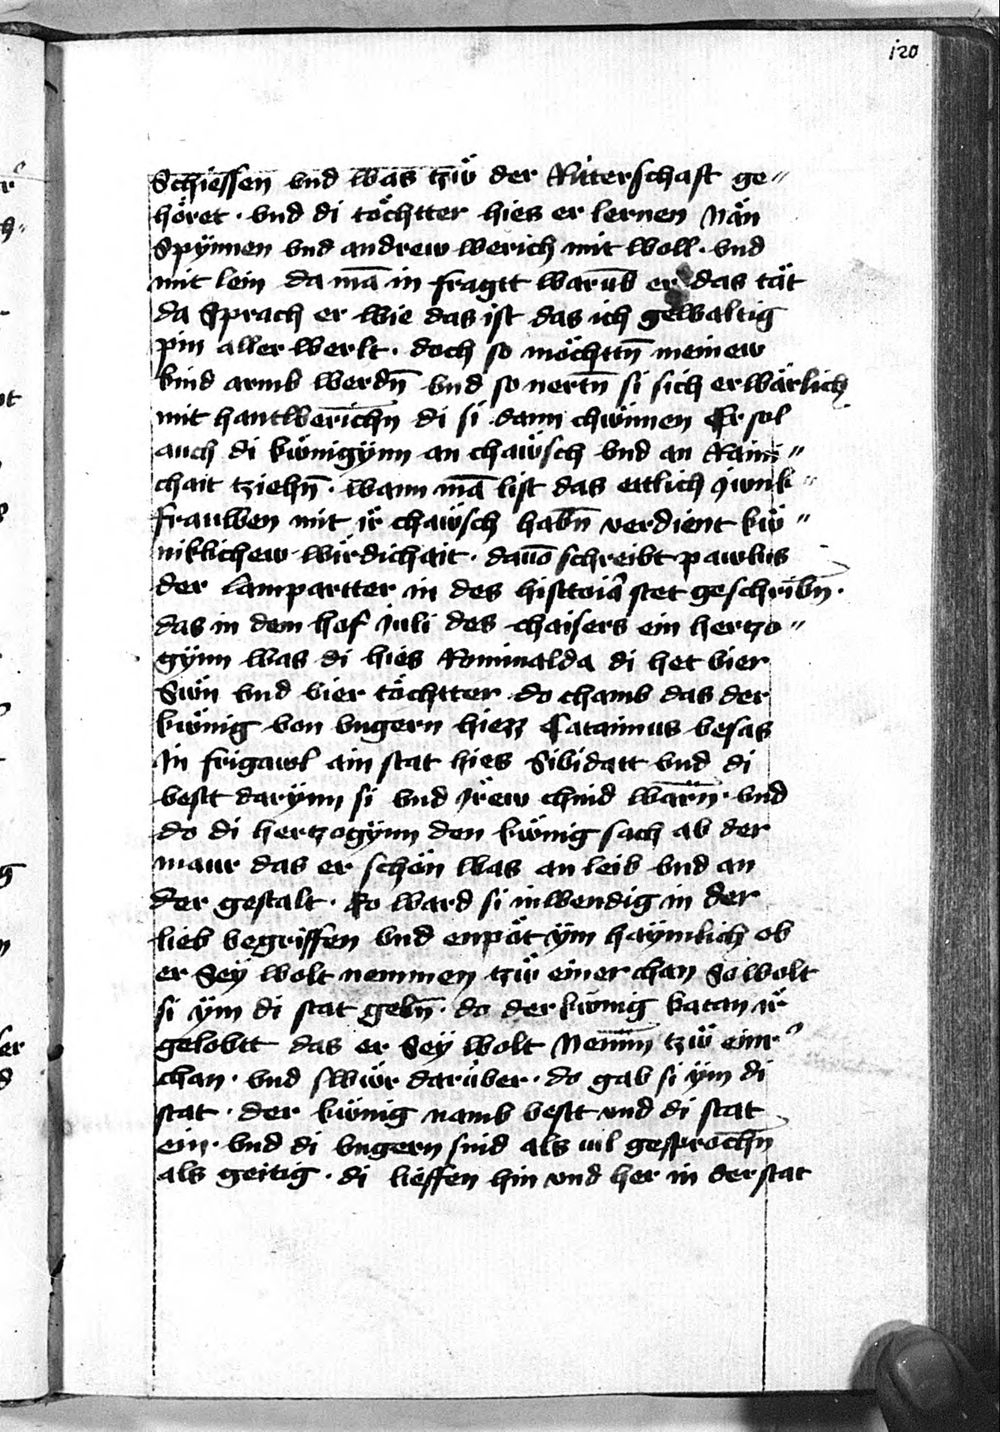 120
Schiessen vnd was tzwͤ der Ritterschaft ge〃
hoͤret · vnd di toͤchtter hies er lernen Naͤn
Spÿnnen vnd andrew werich mit woll · vnd
mit lein da mā in fragtt warūb er das taͤt
da Sprach er wie das ist das ich gewaltig
pin aller werlt · doch so moͤchttn̄ meinew
kind armb werdn̄ vnd so nertn̄ si sich erwaͤrlich
mit hantwerichn̄ di si dann chwnnen Er sol
auch di kwͤnigÿnn an chawͤsch vnd an Raini〃
chait tziehn̄ · wann mā list das ettlich Jwnk〃
frauwen mit irͤ chawͤsch habn̄ verdient kwͤ〃
niklichew wirdichait · dauō schreibt pawlus
der lampartter in des histtoia stet geschribn̄ ·
das in dem hof Juli des chaisers ein hertzo〃
gÿnn was di hies Rominalda di het vier
Swͤn vnd vier toͤchtter do chamb das der
kwͤnig von vngern hiezz Catainnus besas
In frigawl ain stat hies Sibidatt vnd di
vestt darÿnn si vnd Jrew chind warn̄ · vnd
do di hertzogÿnn den kwͤnig sach ab der
maur das er schoͤn was an leib vnd an
der gestalt · So ward si inwendig in der
lieb begriffen vnd enpoͤt ÿm haÿmlich ob
er Seÿ wolt nemmen tzwͤ einer chan So wolt
si ÿm di stat gebn̄ · do der kwͤnig katan irͤ
gelobtt das er Seÿ wolt Nemm̄ tzwͤ einr
chan · vnd swͤr daruͤber · do gab si ÿm di
stat · der kwͤnig namb vestt vnd di stat
ein · vnd di vngern sind als wil gesprochn̄
als geitig · di lieffen hin vnd her in der stat